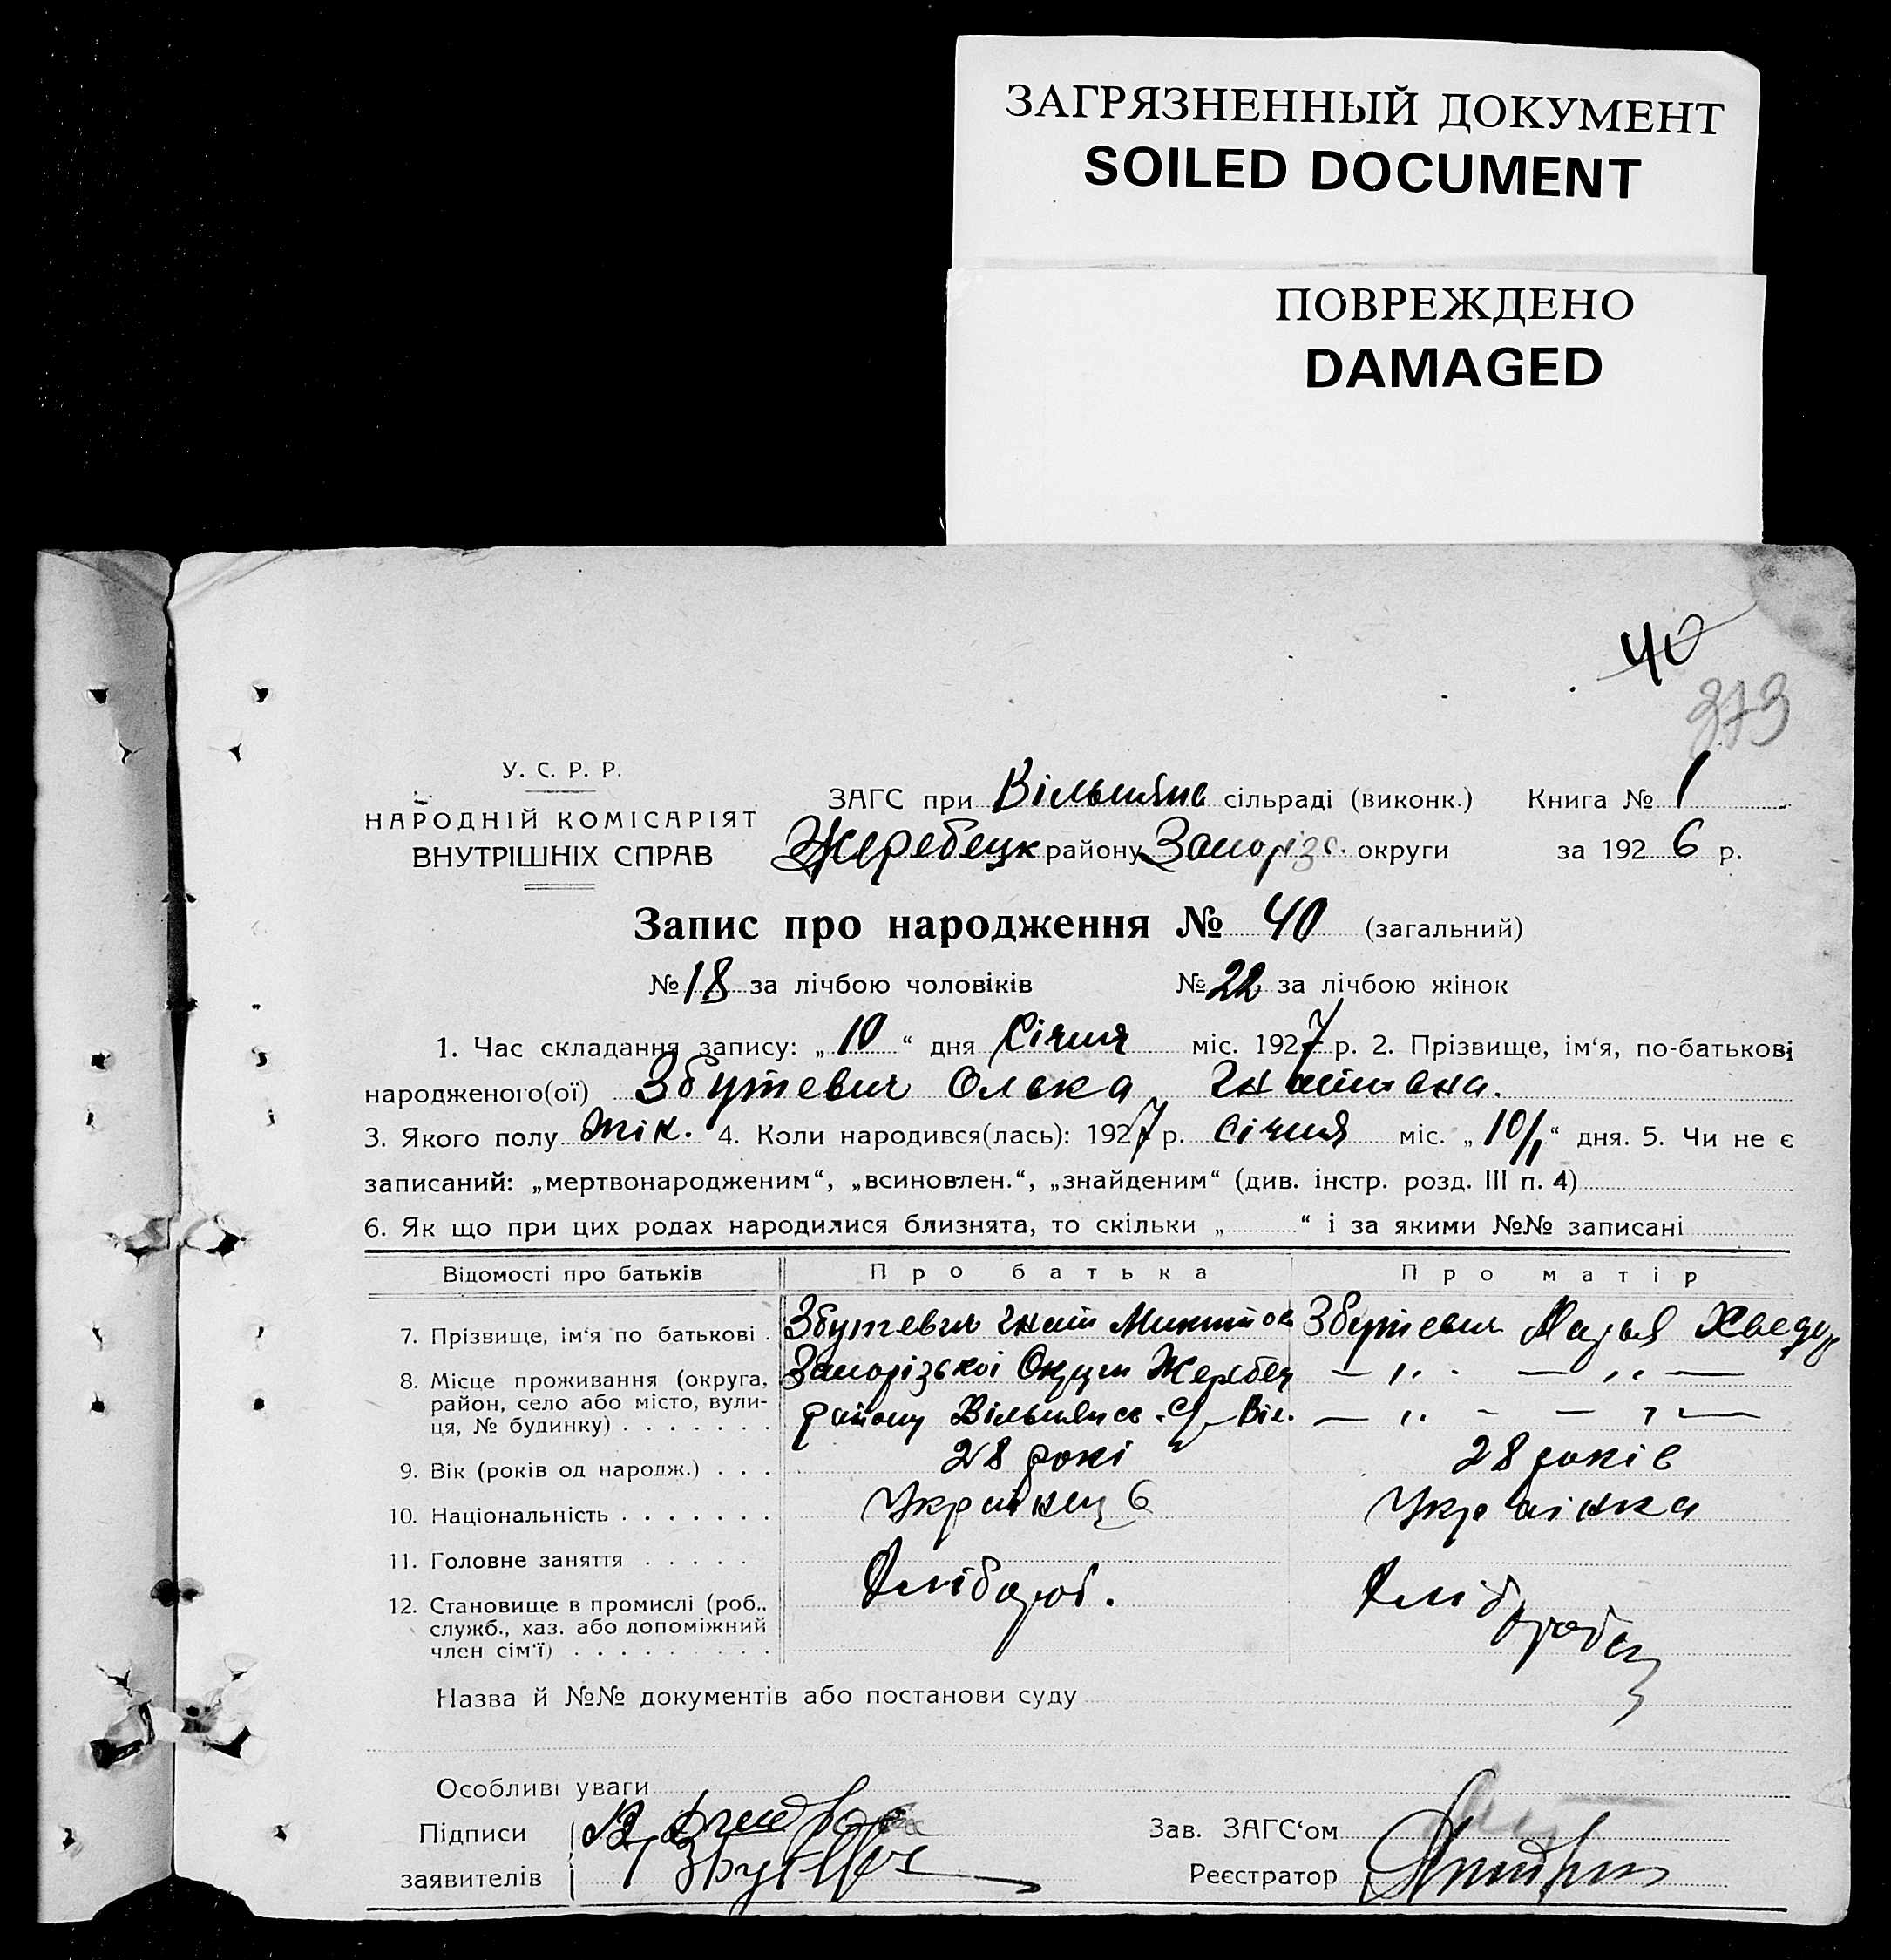 ЗАГРЯЗНЕННЫЙ ДОКУМЕНТ
SOILED DOCUMENT
ПОВРЕЖДЕНО
DAMAGED
40
373
У. С. Р. Р.
НАРОДНІЙ КОМІСАРІЯТ
ВНУТРІШНІХ СПРАВ
ЗАГС при Вільнянс сільраді (виконк.) Книга № 1
Жеребецк району Запоріз. округи за 1926 р.
Запис про народження № 40 (загальний)
№ 18 за лічбою чоловіків № 22 за лічбою жінок
1. Час складання запису: „10“ дня Січня міс. 1927 р. 2. Прізвище, ім‘я, по-батькові
народженого(ої) Збутевич Олька Гнатівна.
3. Якого полу жін. 4. Коли народився(лась): 1927 р. січня міс. „10/1“ дня. 5. Чи не є
записаний: „мертвонародженим“, „всиновлен.“, „знайденим“ (див. інстр. розд. III п. 4)
6. Як що при цих родах народилися близнята, то скільки „ “ і за якими №№ записані
Відомості про батьків Про батька Про матір
7. Прізвище, ім‘я по батькові . Збутевич Гнат Микитов Збутевич Марья Хведур
8. Місце проживання (округа, Запорізької Округи Жеребец — „ — „ —
район, село або місто, вули- району Вільнянсь. с Віл. — „ - - „ —
ця, № будинку) . . . . . . .
9. Вік (років од народж.) . . . 28 рокі 28 років
10. Національність . . . . . . . Українець Українка
11. Головне заняття . . . . .
Хлібороб. Хлібороби
12. Становище в промислі (роб.,
служб., хаз. або допоміжний
член сім‘ї) . . . . . . . . .
Назва й №№ документів або постанови суду
Особливі уваги
Підписи
Зав. ЗАГС‘ом
заявителів
Реєстратор